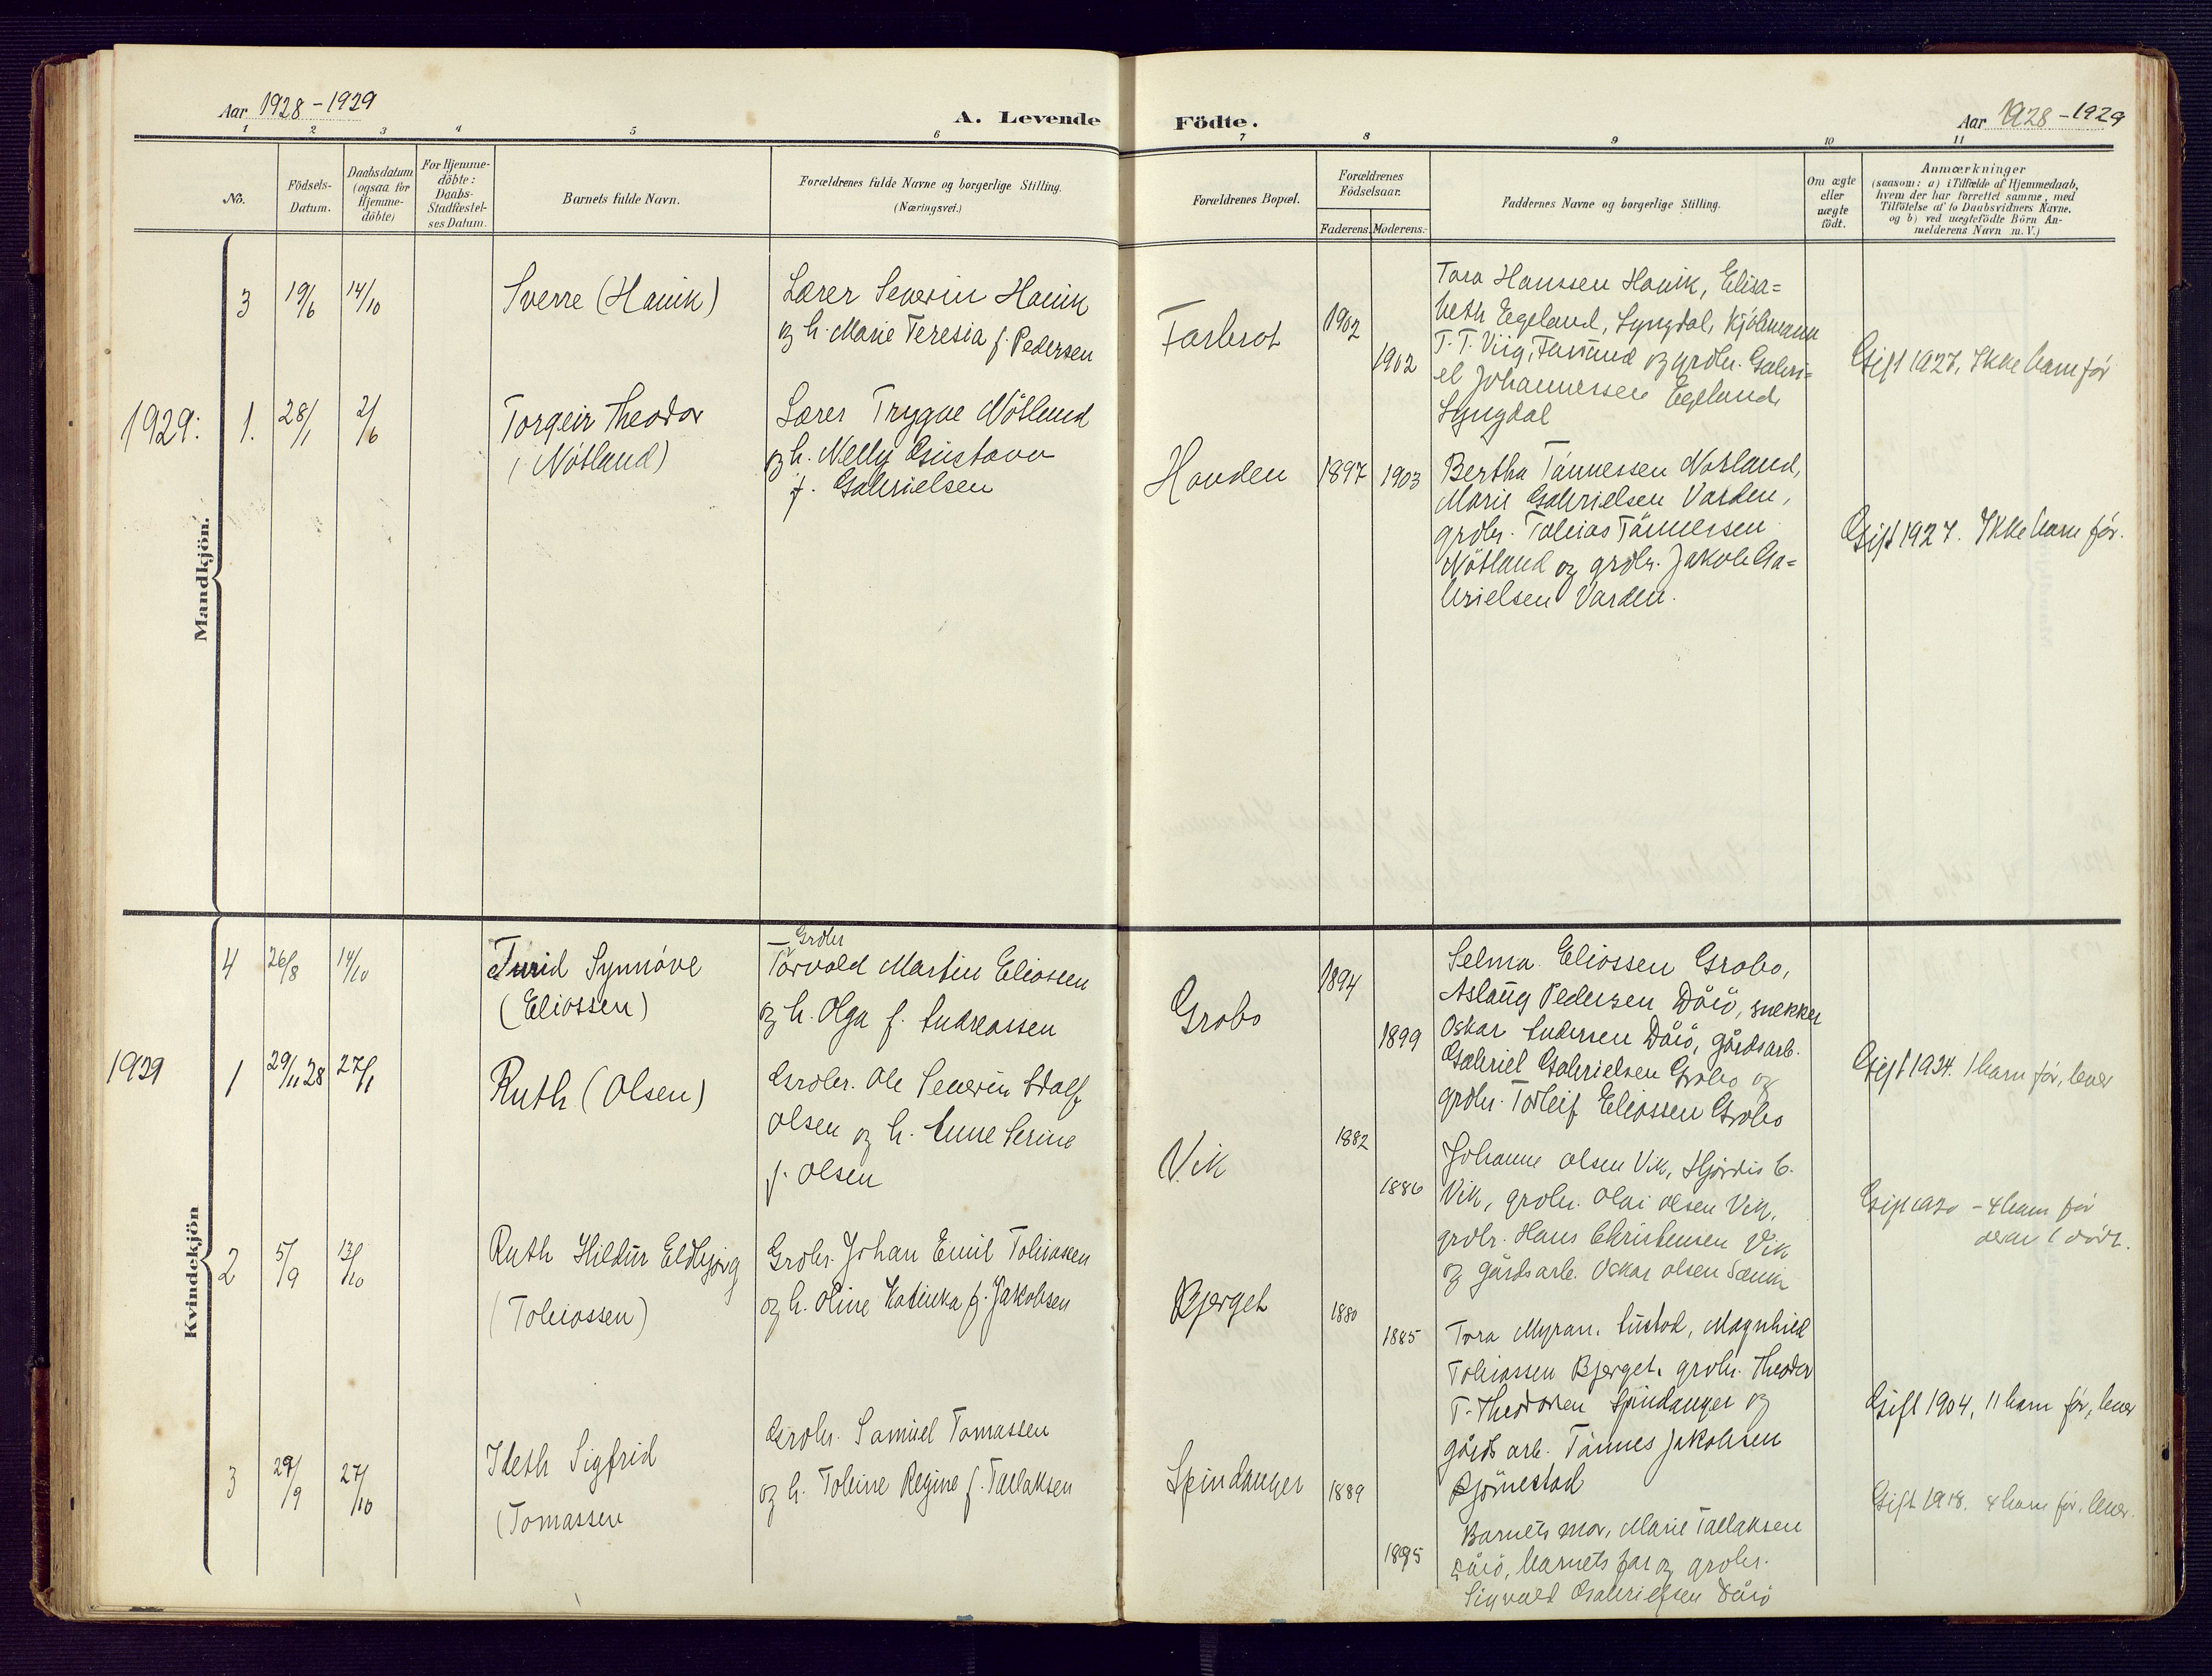 Aar 1928-1929
A. Levende
Födte.
Aar 1928-1929
1 2 3 4 5 6 7 8 9 10 11
No.
Födsels-
Datum.
Daabsdatum
(ogsaa for
Hjemme-
döbte)
For Hjemme-
döbte:
Daabs-
Stadfæstel-
ses Datum.
Barnets fulde Navn.
Forældrenes fulde Navne og borgerlige Stilling.
(Næringsvei.)
Forældrenes Bopæl.
Forældrenes
Födselsaar.
Faderens. Moderens.
Faddernes Navne og borgerlige Stilling.
Om ægte
eller
uægte
födt.
Anmærkninger
(saasom: a) i Tilfælde af Hjemmedaab,
hvem der har forrettet samme, med
Tilföielse af to Daabsvidners Navne.
og b) ved uægtefödte Börn An-
melderens Navn m. V.)
Mandkjön.
3 19/6 14/10
Sverre (Hauik)
Lærer Severin Hauik
og h. Marie Teresia f. Pedersen
Farbrot
1902
1902
Tara Hanssen Hauik, Elisa=
beth Egeland, Lyngdal, Kjöbmann
T. T. Viig, Farsund og grdbr. Gabri=
el Johannessen Egeland,
Lyngdal
Gift 1927, Ikke barn før
1929: 1. 28/1 2/6
Torgeir Theodor
(Nötland)
Lærer Trygve Nötland
og h. Nelly Gustava
f. Gabrielsen
Hauden
1897 1903
Bertha Tønnessen Nötland,
Marie Gabrielsen Varden,
grdbr. Tobias Tönnessen
Nötland og grdbr. Jakob Ga=
brielsen Varden.
Gift 1927. Ikke barn før.
Kvindekjön
4 26/8 14/10
Turid Synnöve
(Eliassen)
Grdbr
Torvald Martin Eliassen
og h. Olga f. Andreassen
Grobo
1894
1899
Selma Eliassen Grobo,
Aslaug Pedersen Dåsö, snekker
Oskar Andersen Dåsö, gårdsarb.
Gabriel Gabrielsen Grobo og
grdbr. Torleif Eliassen Grobo
Gift 1924. 1 barn før, lever
1929 1 29/11 28 27/1
Ruth (Olsen)
Grdbr. Ole Severin Adolf
Olsen og h. Anne Serine
f. Olsen
Vik
1882
1886
Johanne Olsen Vik, Hjördis C.
Vik, grdbr. Olai Olsen Vik,
grdbr. Hans Christensen Vik
og gårdsarb. Oskar Olsen
Gift 1920 - 4 barn før
derav 1 död.
2 5/9 13/10
Ruth Hildur Eldbjørg
(Tobiassen)
Grdbr. Johan Emil Tobiassen
og h. Oline Katinka f. Jakobsen
Bjerget
1880
1885
Tora Myran, Austad, Magnhild
Tobiassen Bjerget, grdbr. Theodor
T. Theodorsen Spindanger og
gårdsarb. Tönnes Jakobsen
Bjørnestad
Gift 1904, 11 barn før, lever
3 29/9 27/10
Ideth Sigfrid
(Tomassen
Grdbr. Samuel Tomassen
og h. Tobine Regine f. Tallaksen
Spindanger
1889
1895
Barnets mor, Marie Tallaksen
Dåsö, barnets far og grdbr.
Sigvald Gabrielsen Dåsö
Gift 1918. 4 barn før, lever.